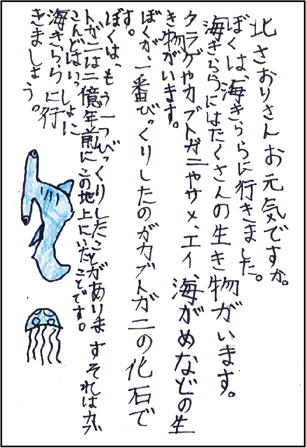 北さおりさんお元気ですか。
ぼくは、海きららに行きました。
海きららにはたくさんの生き物がいます。
クラゲやカブトガニやサメ、エイ、海がめなどの生
き物がいます。
ぼくが、一番びっくりしたのがカブトガニの化石で
す。
ぼくは、もう一つびっくりしたことがあります それはカブ
トガニは二億年前にこの地上にいたことです。
こんどはいっしょに
海きららに行
きましょう。